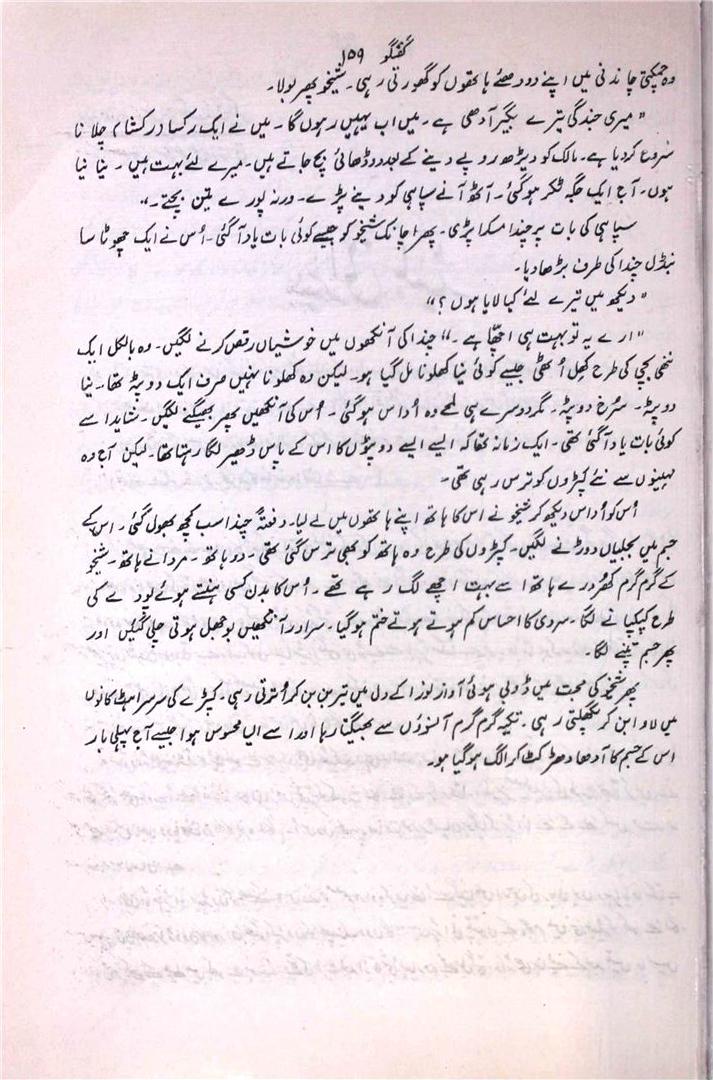 گفتگو ۱۵۹
وہ چمکتی چاندنی میں اپنے دودھئے ہاتھوں کو گھورتی رہی۔ شیخو پھر بولا۔
" میری جندگی تیرے بگیر آدھی ہے۔ میں اب یہیں رہوں گا۔ میں نے ایک رکسا (رکشا) چلانا
سروع کر دیا ہے۔ مالک کو ڈیڑھ روپے دینے کے بعد دو ڈھائی بچ جاتے ہیں۔ میرے لئے بہت ہیں۔ نیا نیا
ہوں۔ آج ایک جگہ ٹکر ہو گئی۔ آٹھ آنے سپاہی کو دینے پڑے۔ ورنہ پورے تین بچتے۔"
سپاہی کی بات پر چندا مسکرا پڑی۔ پھر اچانک شیخو کو جیسے کوئی بات یاد آ گئی۔ اُس نے ایک چھوٹا سا
بنڈل چندا کی طرف بڑھا دیا۔
" دیکھ میں تیرے لئے کیا لایا ہوں؟"
" ارے یہ تو بہت ہی اچھا ہے۔" چندا کی آنکھوں میں خوشیاں رقص کرنے لگیں۔ وہ بالکل ایک
ننھی بچی کی طرح کھل اُٹھی جیسے کوئی نیا کھلونا مل گیا ہو۔ لیکن وہ کھلونا نہیں صرف ایک دوپٹہ تھا۔ نیا
دوپٹہ۔ سُرخ دوپٹہ۔ مگر دوسرے ہی لمحے وہ اُداس ہو گئی۔ اُس کی آنکھیں پھر بھیگنے لگیں۔ شاید اسے
کوئی بات یاد آ گئی تھی۔ ایک زمانہ تھا کہ ایسے ایسے دوپٹوں کا اس کے پاس ڈھیر لگا رہتا تھا۔ لیکن آج وہ
مہینوں سے نئے کپڑوں کو ترس رہی تھی۔
اُس کو اُداس دیکھ کر شیخو نے اس کا ہاتھ اپنے ہاتھوں میں لے لیا۔ دفعتہً چندا سب کچھ بھول گئی۔ اس کے
جسم میں بجلیاں دوڑنے لگیں۔ کپڑوں کی طرح وہ ہاتھ کو بھی ترس گئی تھی۔ دو ہاتھ۔ مردانے ہاتھ۔ شیخو
کے گرم گرم کھُردرے ہاتھ اسے بہت اچھے لگ رہے تھے۔ اُس کا بدن کسی ہنستے ہوئے پودے کی
طرح کپکپانے لگا۔ سردی کا احساس کم ہوتے ہوتے ختم ہو گیا۔ سر اور آنکھیں بوجھل ہوتی چلی گئیں اور
پھر جسم تپنے لگا۔
پھر شیخو کی محبت میں ڈوبی ہوئی آواز لوزا کے دل میں تیر بن بن کر اُترتی رہی۔ کپڑے کی سرسراہٹ کانوں
میں لاوا بن کر پگھلتی رہی۔ تکیہ گرم گرم آنسوؤں سے بھیگتا رہا اور اسے ایسا محسوس ہوا جیسے آج پہلی بار
اس کے جسم کا آدھا دھڑ کٹ کر الگ ہو گیا ہو۔